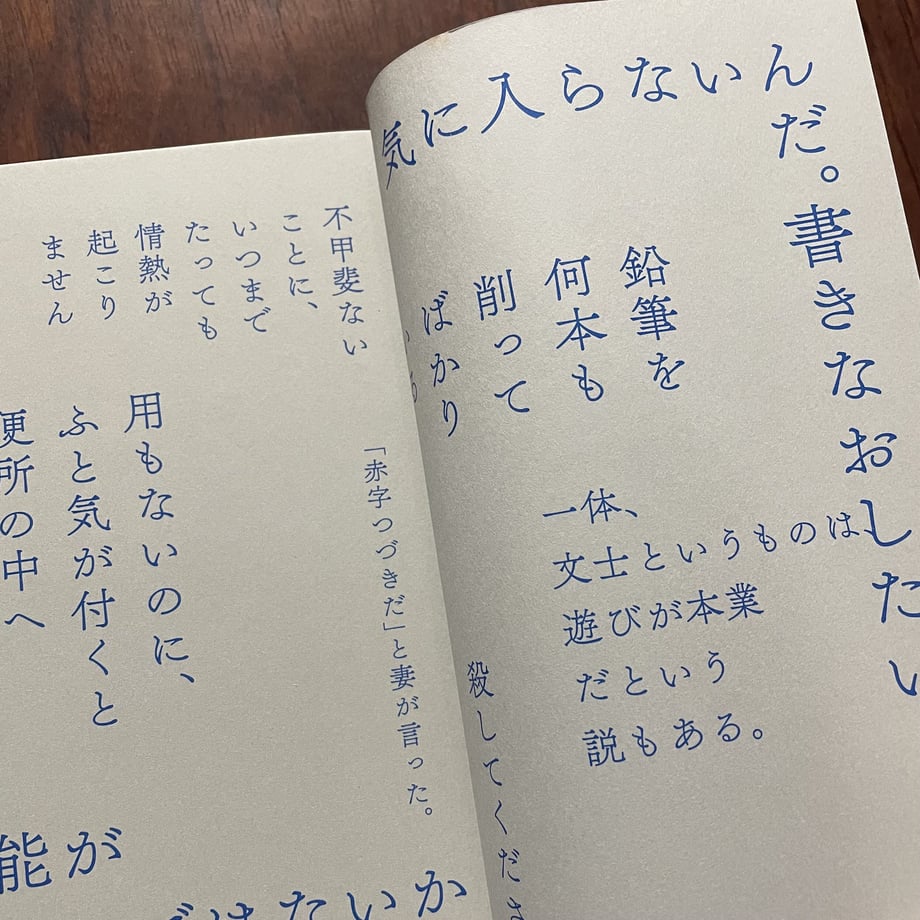 気に入らないん
だ。書きなおしたい
鉛筆を
何本も
削って
ばかり
いる
一体、
文士というものは
遊びが本業
だという
説もある。
殺してくださ
不甲斐ない
ことに、
いつまで
たっても
情熱が
起こり
ません
「赤字つづきだ」と妻が言った。
用もないのに、
ふと気が付くと
便所の中へ
能が
ではないか